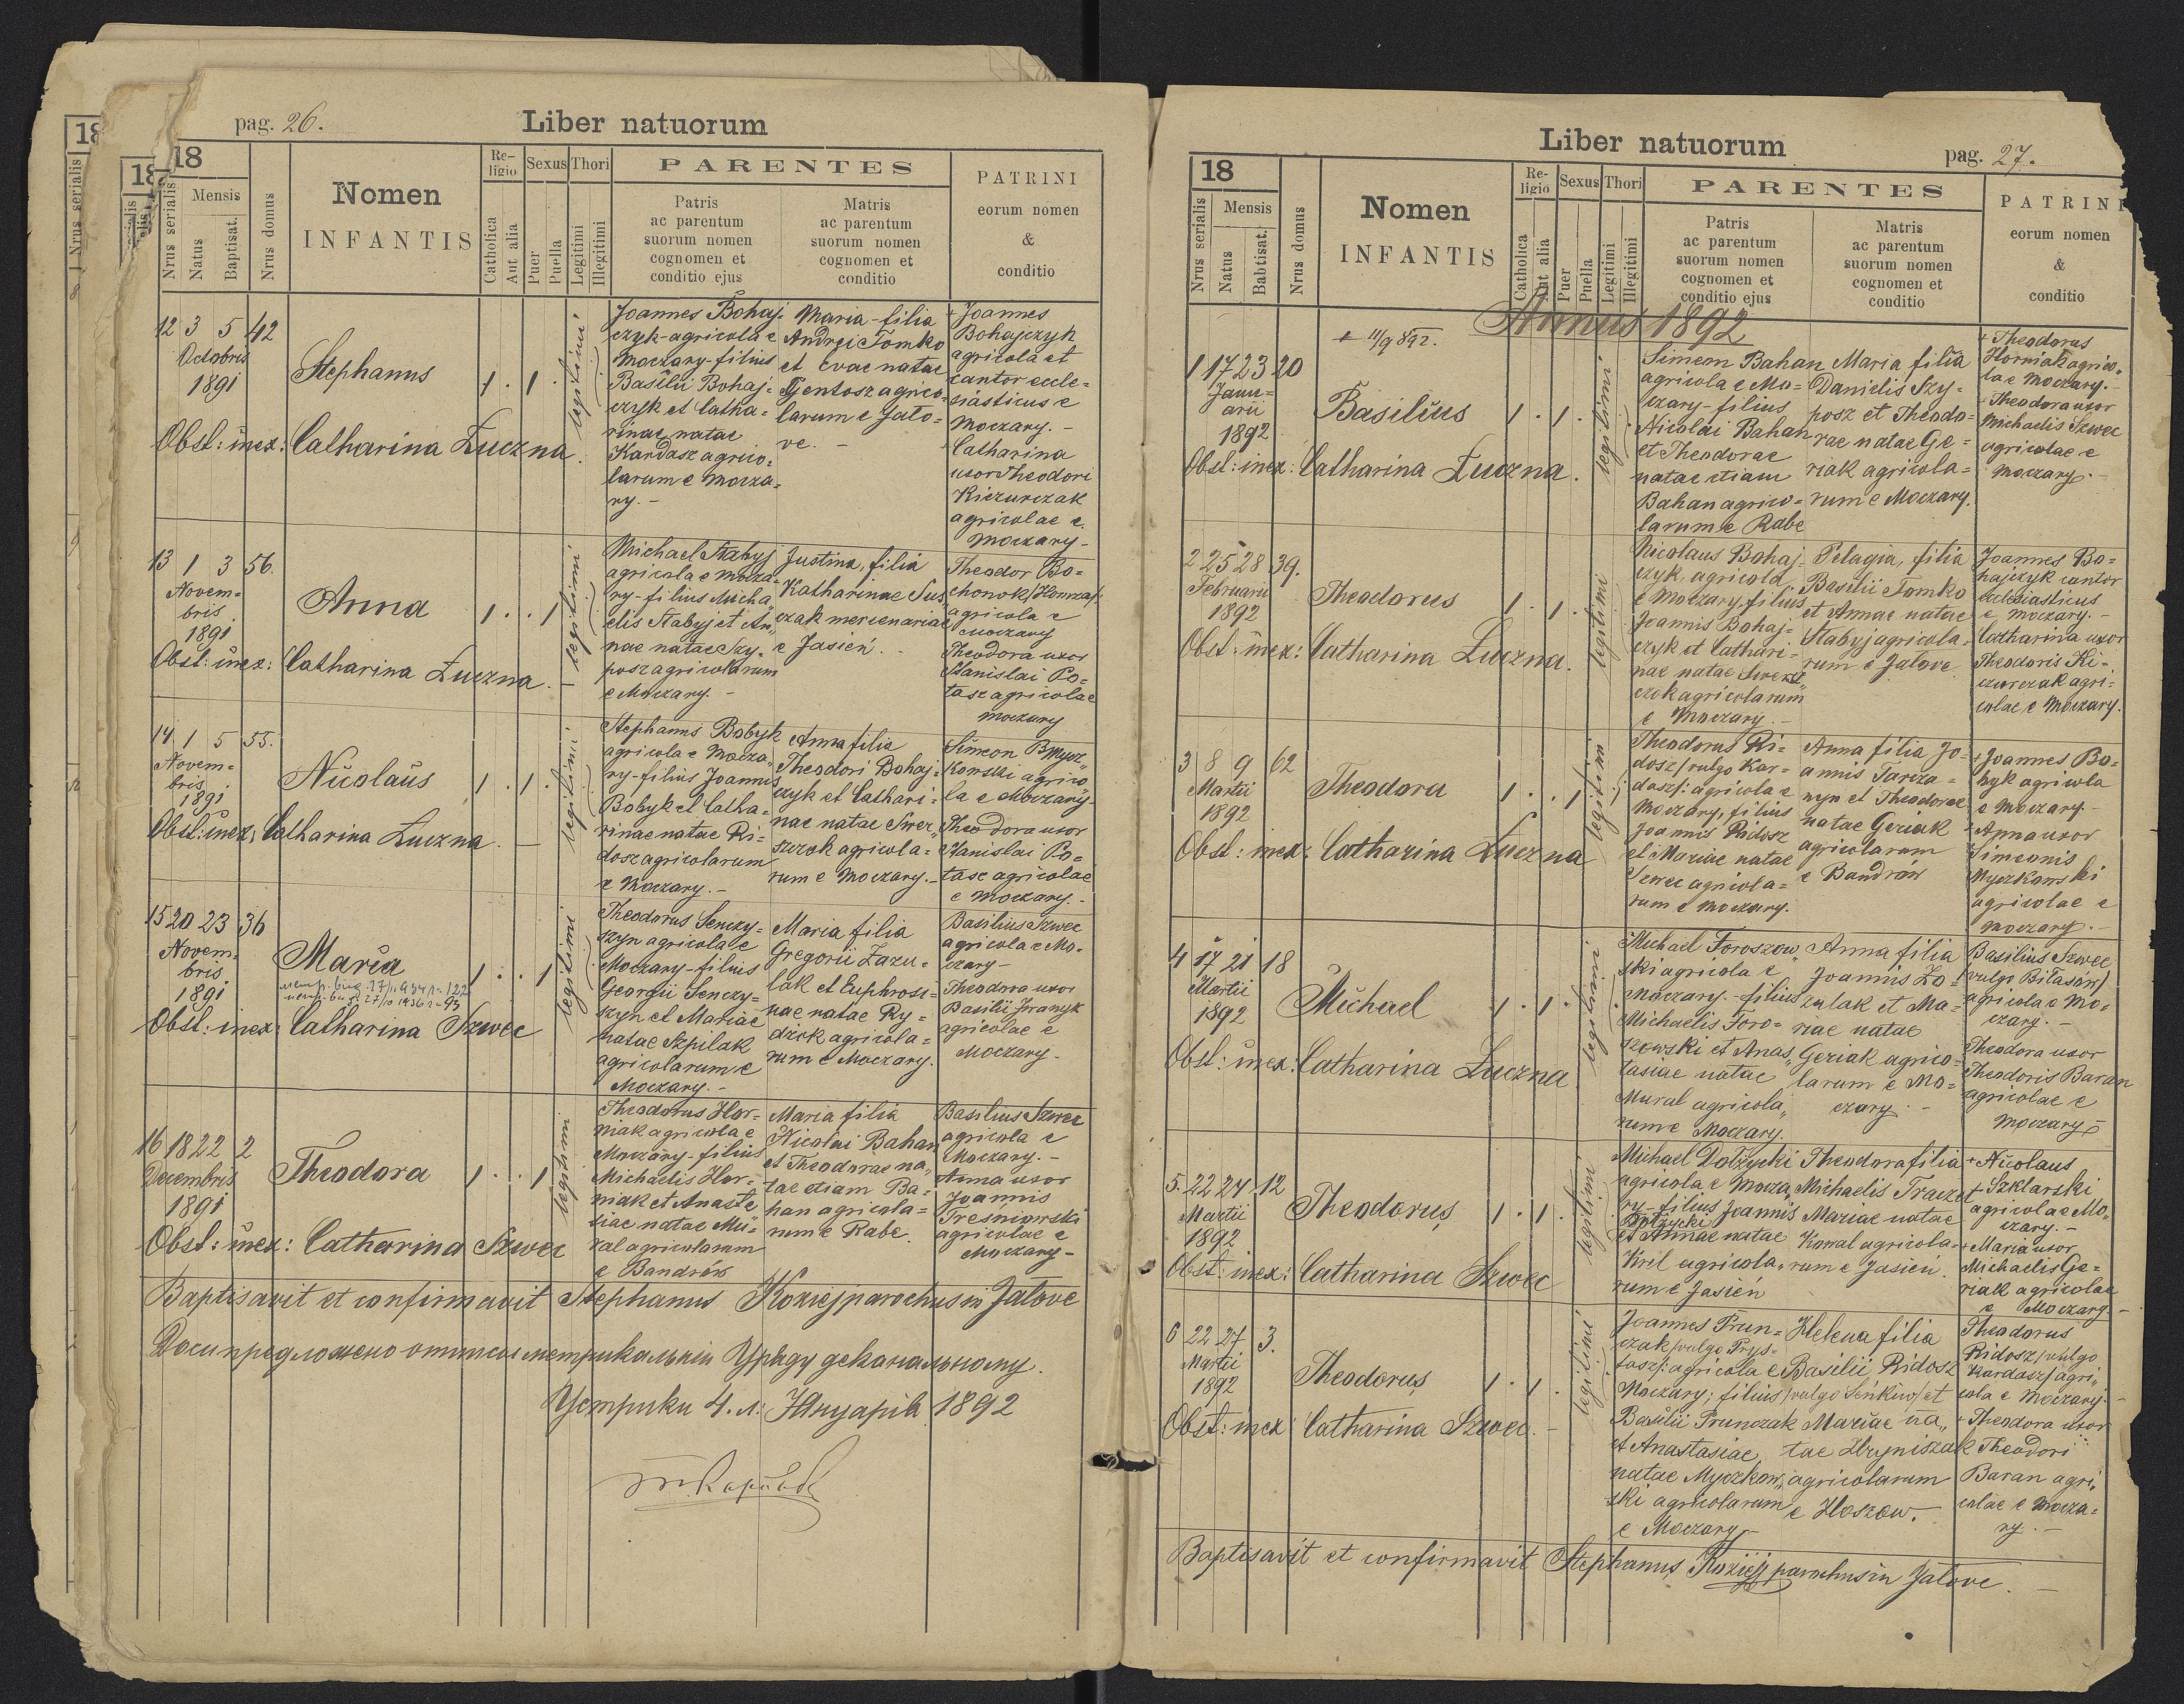 pag. 26.
Liber natuorum
18
Nrus serialis
Mensis
Natus
Baptisat.
Nrus domus
Nomen
INFANTIS
Religio
Catholica
Aut alia
Sexus
Puer
Puella
Thori
Legitimi
Illegitimi
PARENTES
Patris
ac parentum
suorum nomen
cognomen et
conditio ejus
Matris
ac parentum
suorum nomen
cognomen et
conditio
PATRINI
eorum nomen
&
conditio
12 3 5 42
Octobris
1891
Stephanus
1 . 1 .
legitimi
Obst: inex: Catharina Łuczna.
Joannes Bohaj-
czyk-agricola e
Moczary-filius
Basilii Bohaj-
czyk et Catha=
rinae natae
Kardasz agrico=
larum e Mocza=
ry. -
Maria-filia
Andrei Tomko
et Evae natae
Gentosz agrico=
larum e Jało=
ve. -
+ Joannes
Bohajczyk
agricola et
cantor eccle=
siasticus e
Moczary. -
+ Catharina
uxor Theodori
Kiczurczak
agricolae e
Moczary -
13 1 3 56.
Novem=
bris
1891
Anna
1 . . 1
legitimi
Obst: inex: Catharina Łuczna. -
Michael Stabyj
agricola e Mocza=
ry-filius Micha
elis Stabyj et An=
nae natae Szy=
posz agricolarum
e Moczary. -
Justina, filia
Katharinae Sus
czak mercenariae
e Jasień. -
Theodor Bo=
chonok
agricola e
Moczary
Theodora uxor
Stanislai Po=
tasz agricolae
Moczary
14 1 5 55.
Novem=
bris
1891
Nicolaus
1 . 1 .
legitimi
Obst: inex: Catharina Łuczna. -
Stephanus Bobyk
agricola e Mocza=
ry-filius Joannis
Bobyk et Catha=
rinae natae Ri=
dosz agricolarum
e Moczary. -
Anna filia
Theodori Bohaj=
czyk et Cathari=
nae natae Swer=
szczok agricola=
rum e Moczary. -
Simeon
agrico
la e Moczary-
Theodora uxor
Stanislai Po=
tasz agricolae
e Moczary. -
15 20 23 36
Novem=
bris
1891
Maria
1 . . 1
legitimi
Obst: inex: Catharina Szwec
Theodorus Senczy=
szyn agricola e
Moczary-filius
Georgii Senczy=
szyn et Mariae
natae Szpilak
agricolarum e
Moczary. -
Maria filia
Gregorii Zazu=
lak et Euphrosi=
nae natae Ry=
dzik agricola=
rum e Moczary.
Basilius Szwec
agricola e Mo=
czary-
Theodora uxor
Basilii
agricolae e
Moczary-
16 18 22 2
Decembris
1891
Theodora
1 . . 1
legitimi
Obst: inex: Catharina Szwec
Theodorus Hor=
niak agricola e
Moczary-filius
Michaelis Hor=
niak et Anasta=
siae natae Mu=
ral agricolarum
e Bandrów
Maria filia
Nicolai Bahan
et Theodorae na=
tae etiam Ba=
han agricola=
rum e Rabe.
Basilius Szwec
agricola e
Moczary. -
Anna uxor
Joannis
Treśniowski
agricolae e
Moczary-
Baptisavit et confirmavit Stephanus Koziej parochus in Jałove
Досипредложено отписы метрикальніи Уряду деканальному.
Устрики 4. л: Януарія 1892
pag. 27.
Liber natuorum
18
Nrus serialis
Mensis
Natus
Babtisat.
Nrus domus
Nomen
INFANTIS
Religio
Catholica
Aut alia
Sexus
Puer
Puella
Thori
Legitimi
Illegitimi
PARENTES
Patris
ac parentum
suorum nomen
cognomen et
conditio ejus
Matris
ac parentum
suorum nomen
cognomen et
conditio
PATRINI
eorum nomen
&
conditio
Annus 1892
+ 11/9 892.
1 17 23 20
Janu=
arii
1892
Basilius
1 . 1 .
legitimi
Obst: inex: Catharina Łuczna.
Simeon Bahan
agricola e Mo=
czary-filius
Nicolai Bahan
et Theodorae
natae etiam
Bahan agrico=
larum e Rabe
Maria filia
Danielis Szy=
posz et Theodo=
rae natae Ge=
riak agricola=
rum e Moczary.
+ Theodorus
Horniak agrico=
la e Moczary. -
+ Theodora uxor
Michaelis Szwec
agricolae e
Moczary. -
2 25 28 39.
Februarii
1892
Theodorus
1 . 1 .
legitimi
Obst: inex: Catharina Łuczna.
Nicolaus Bohaj-
czyk, agricola
e Moczary filius
Joannis Bohaj-
czyk et Cathari=
nae natae Swersz
czok agricolarum
e Moczary. -
Pelagia, filia
Basilii Tomko
et Annae natae
Stabyj agricola=
rum e Jałove
Joannes Bo=
hajczyk cantor
ecclesiasticus
e Moczary. -
Catharina uxor
Theodoris Ki=
czurczak agri=
colae e Moczary.
3 8 9 62
Martii
1892
Theodora
1 . . 1
legitimi
Obst: inex: Catharina Łuczna
Theodorus Ri=
dosz /vulgo Kar=
dasz/: agricola e
Moczary, filius
Joannis Ridosz
et Mariae natae
Szwec agricola=
rum e Moczary.
Anna filia Jo=
annis Tarcza=
nyn et Theodorae
natae Geriak
agricolarum
e Bandrów
+ Joannes Bo=
byk agricola
e Moczary. -
+ Anna uxor
Simeonis
Myczkowski
agricolae e
Moczary. -
4 17 21 18
Martii
1892
Michael
1 . 1 .
legitimi
Obst: inex: Catharina Łuczna
Michael Foroszow=
ski agricola e
Moczary.-filius
Michaelis Foro=
szowski et Anas=
tasiae natae
Mural agricola=
rum e Moczary.
Anna filia
Joannis Zo=
zulak et Ma=
riae natae
Geriak agrico=
larum e Mo=
czary. -
Basilius Szwec
/vulgo Biłasów/
agricola e Mo=
czary. -
Theodora uxor
Theodoris Baran
agricolae e
Moczary -
5. 22 24 12
Martii
1892
Theodorus
1 . 1 .
legitimi
Obst: inex: Catharina Szwec
Michael Dołzycki
agricola e Mocza=
ry-filius Joannis
Dołzycki
et Annae natae
Kril agricola=
rum e Jasień
Theodora filia
Michaelis Tracz et
Mariae natae
Kowal agricola=
rum e Jasień.
+ Nicolaus
Szklarski
agricola e Mo=
czary. -
+ Maria uxor
Michaelis Ge=
riak agricolae
e Moczary. -
6 22 27 3.
Martii
1892
Theodorus
1 . 1 .
legitimi
Obst: inex: Catharina Szwec. -
Joannes Prun=
czak /vulgo Prys=
tasz/: agricola e
Moczary; filius
Basilii Prunczak
et Anastasiae
natae Myczkow=
ski agricolarum
e Moczary-
Helena filia
Basilii Ridosz
/vulgo Seńkiw/ et
Mariae na=
tae Hryniszak
agricolarum
e Hoszow.
Theodorus
Ridosz /vulgo
Kardasz/ agri=
cola e Moczary. -
+ Theodora uxor
Theodori
Baran agri=
colae e Mocza=
ry. -
Baptisavit et confirmavit Stephanus Koziej parochus in Jałove. -